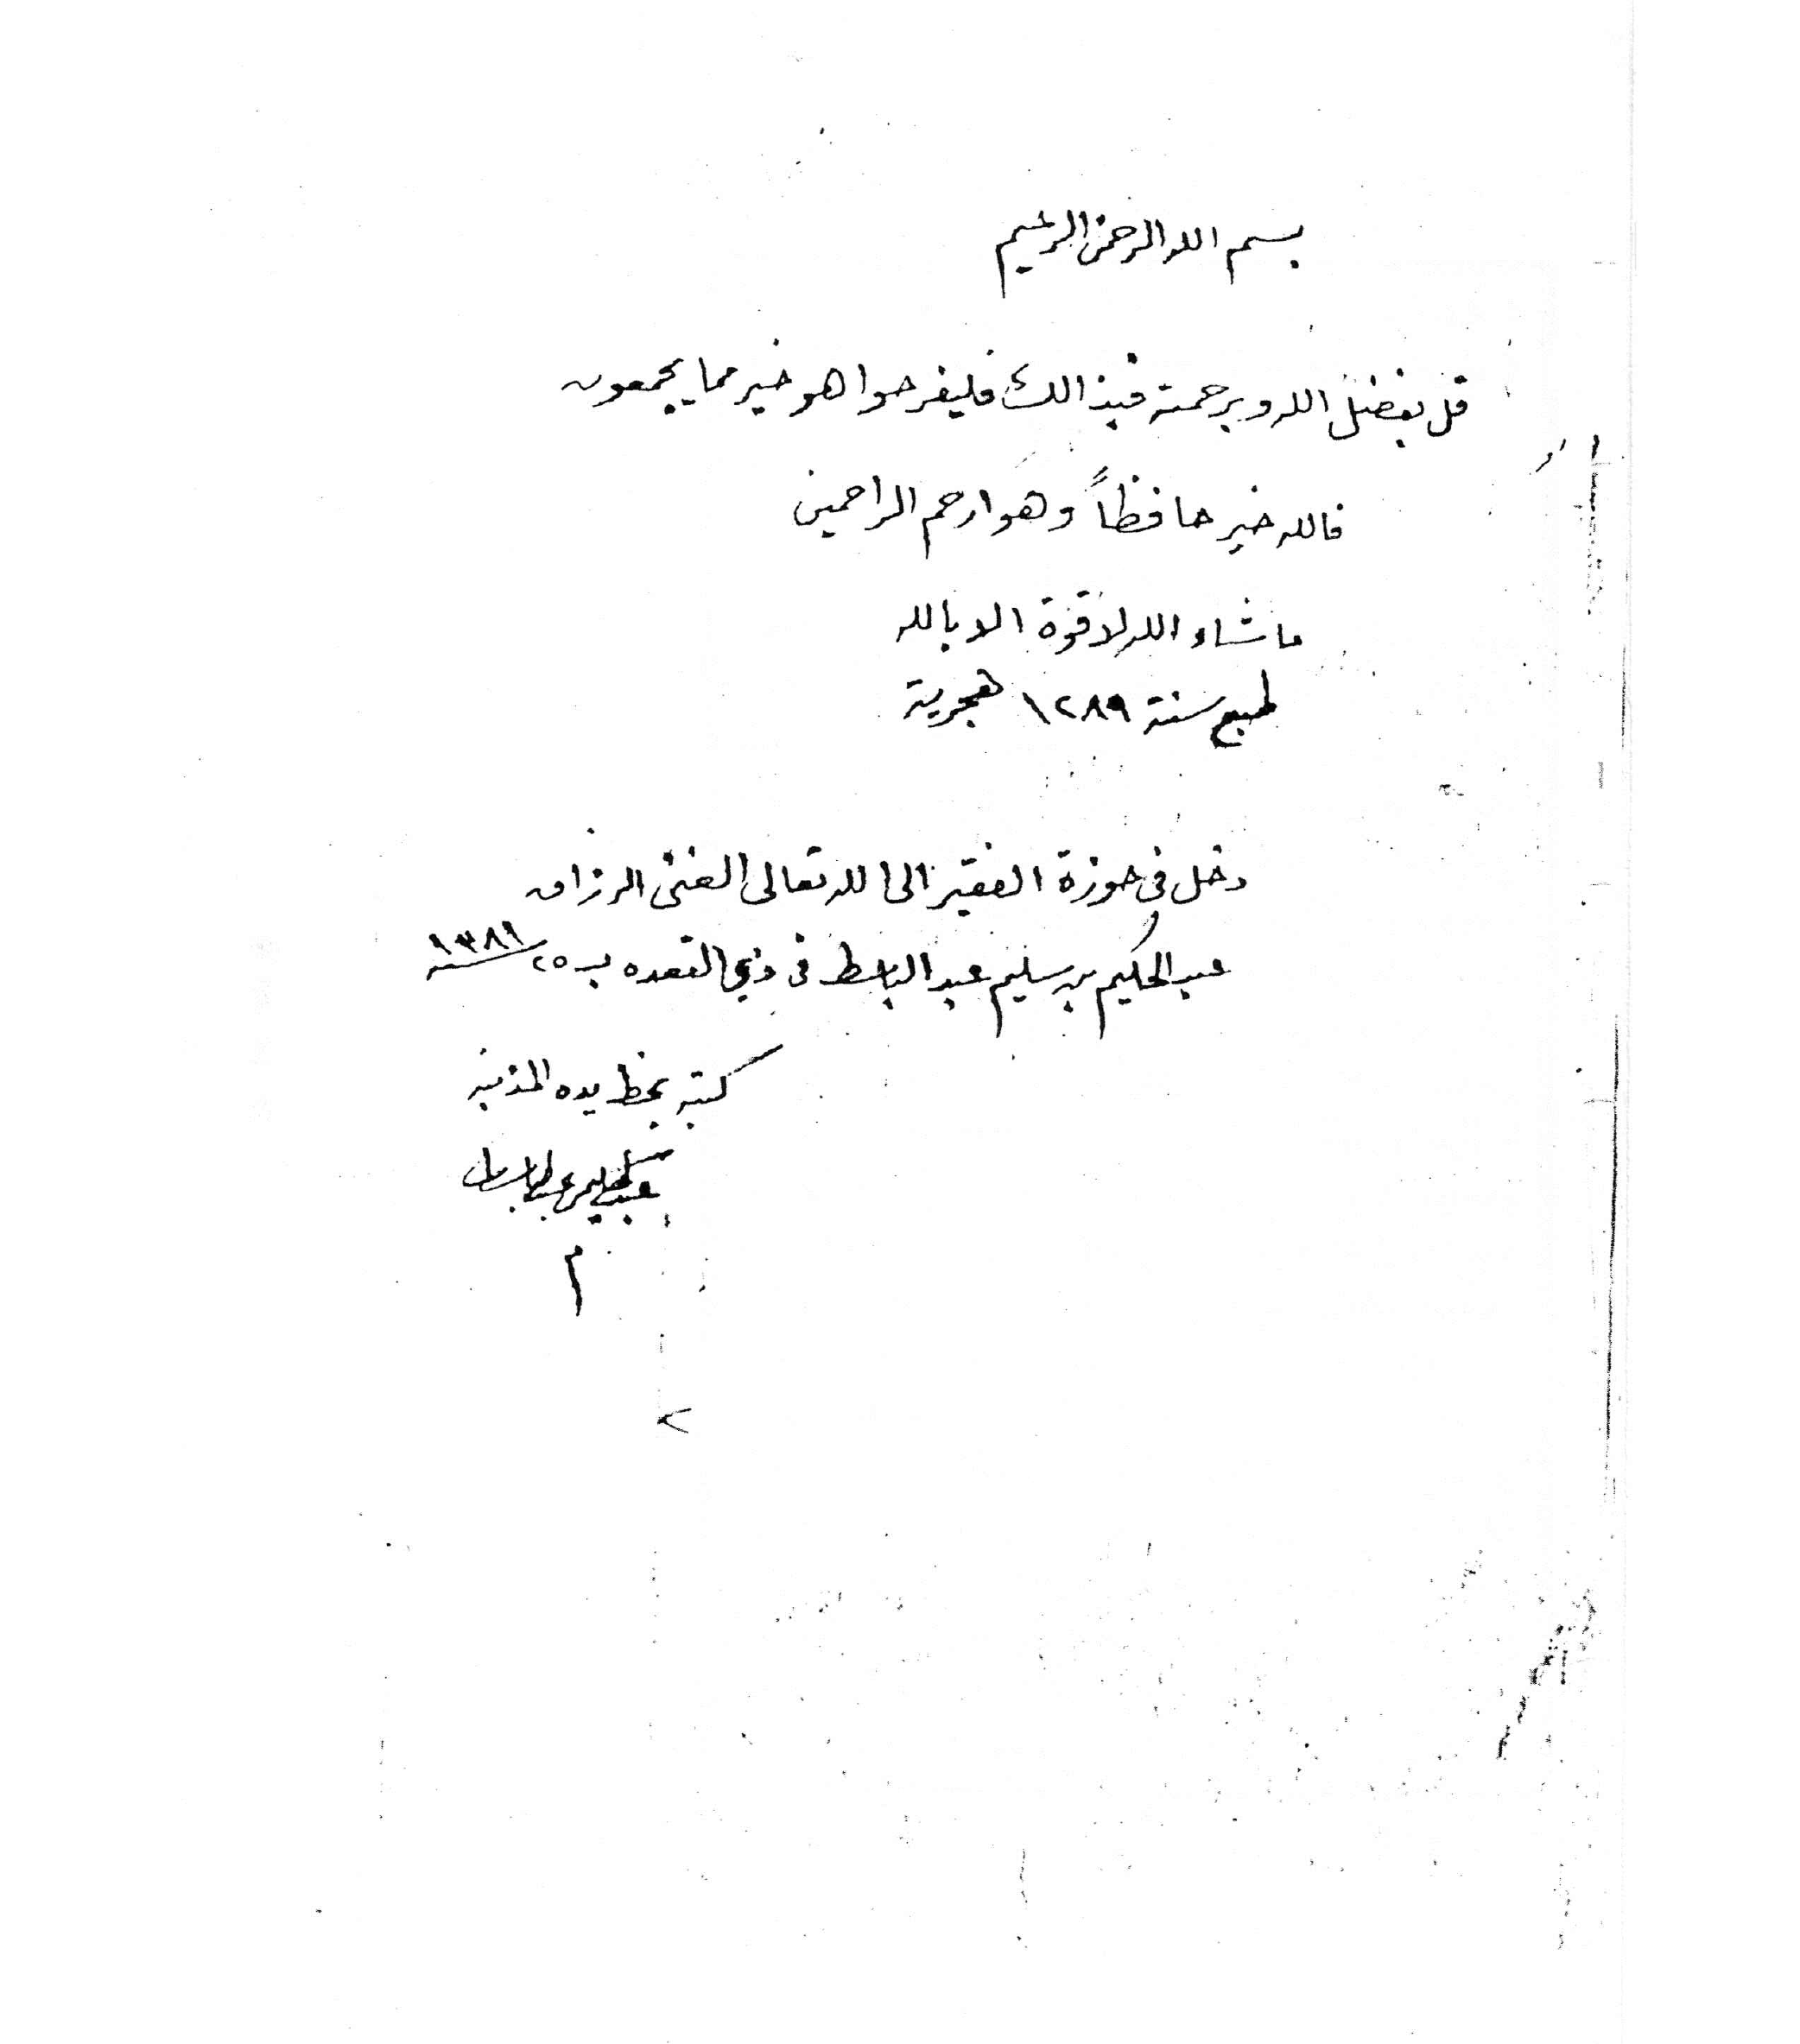 بسم الله الرحمن الرحيم
قل بفضل الله وبرحمته فبذالك فليفرحوا هو خير مما يجمعون
فالله خير حافظاً وهو ارحم الراحمين
ما شاء الله لا قوة الا بالله
طبع سنة ١٢٨٩ هجرية
دخل في حوزة الفقير الى الله تعالى الغني الرزاق
عبد الحكيم بن سليم عبد الباسط في ذي القعده بـ ٢٥ سنة ١٣٨١
كتبه بخط يده المذنب
عبد الحكيم عبد الباسط
م